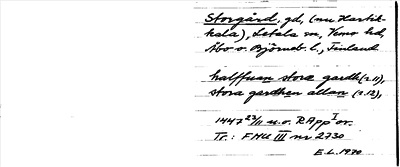 Storgård, gd, (nu Hartik-
kala), Letala sn, Vemo hd,
Åbo o. Björneb. l., Finland
halffuan stora gardh (r.11),
stora gardhen allan (r.12),
1447 23/11 u.o. RApp I or.
Tr.: FMU III nr 2730
E.L. 1970